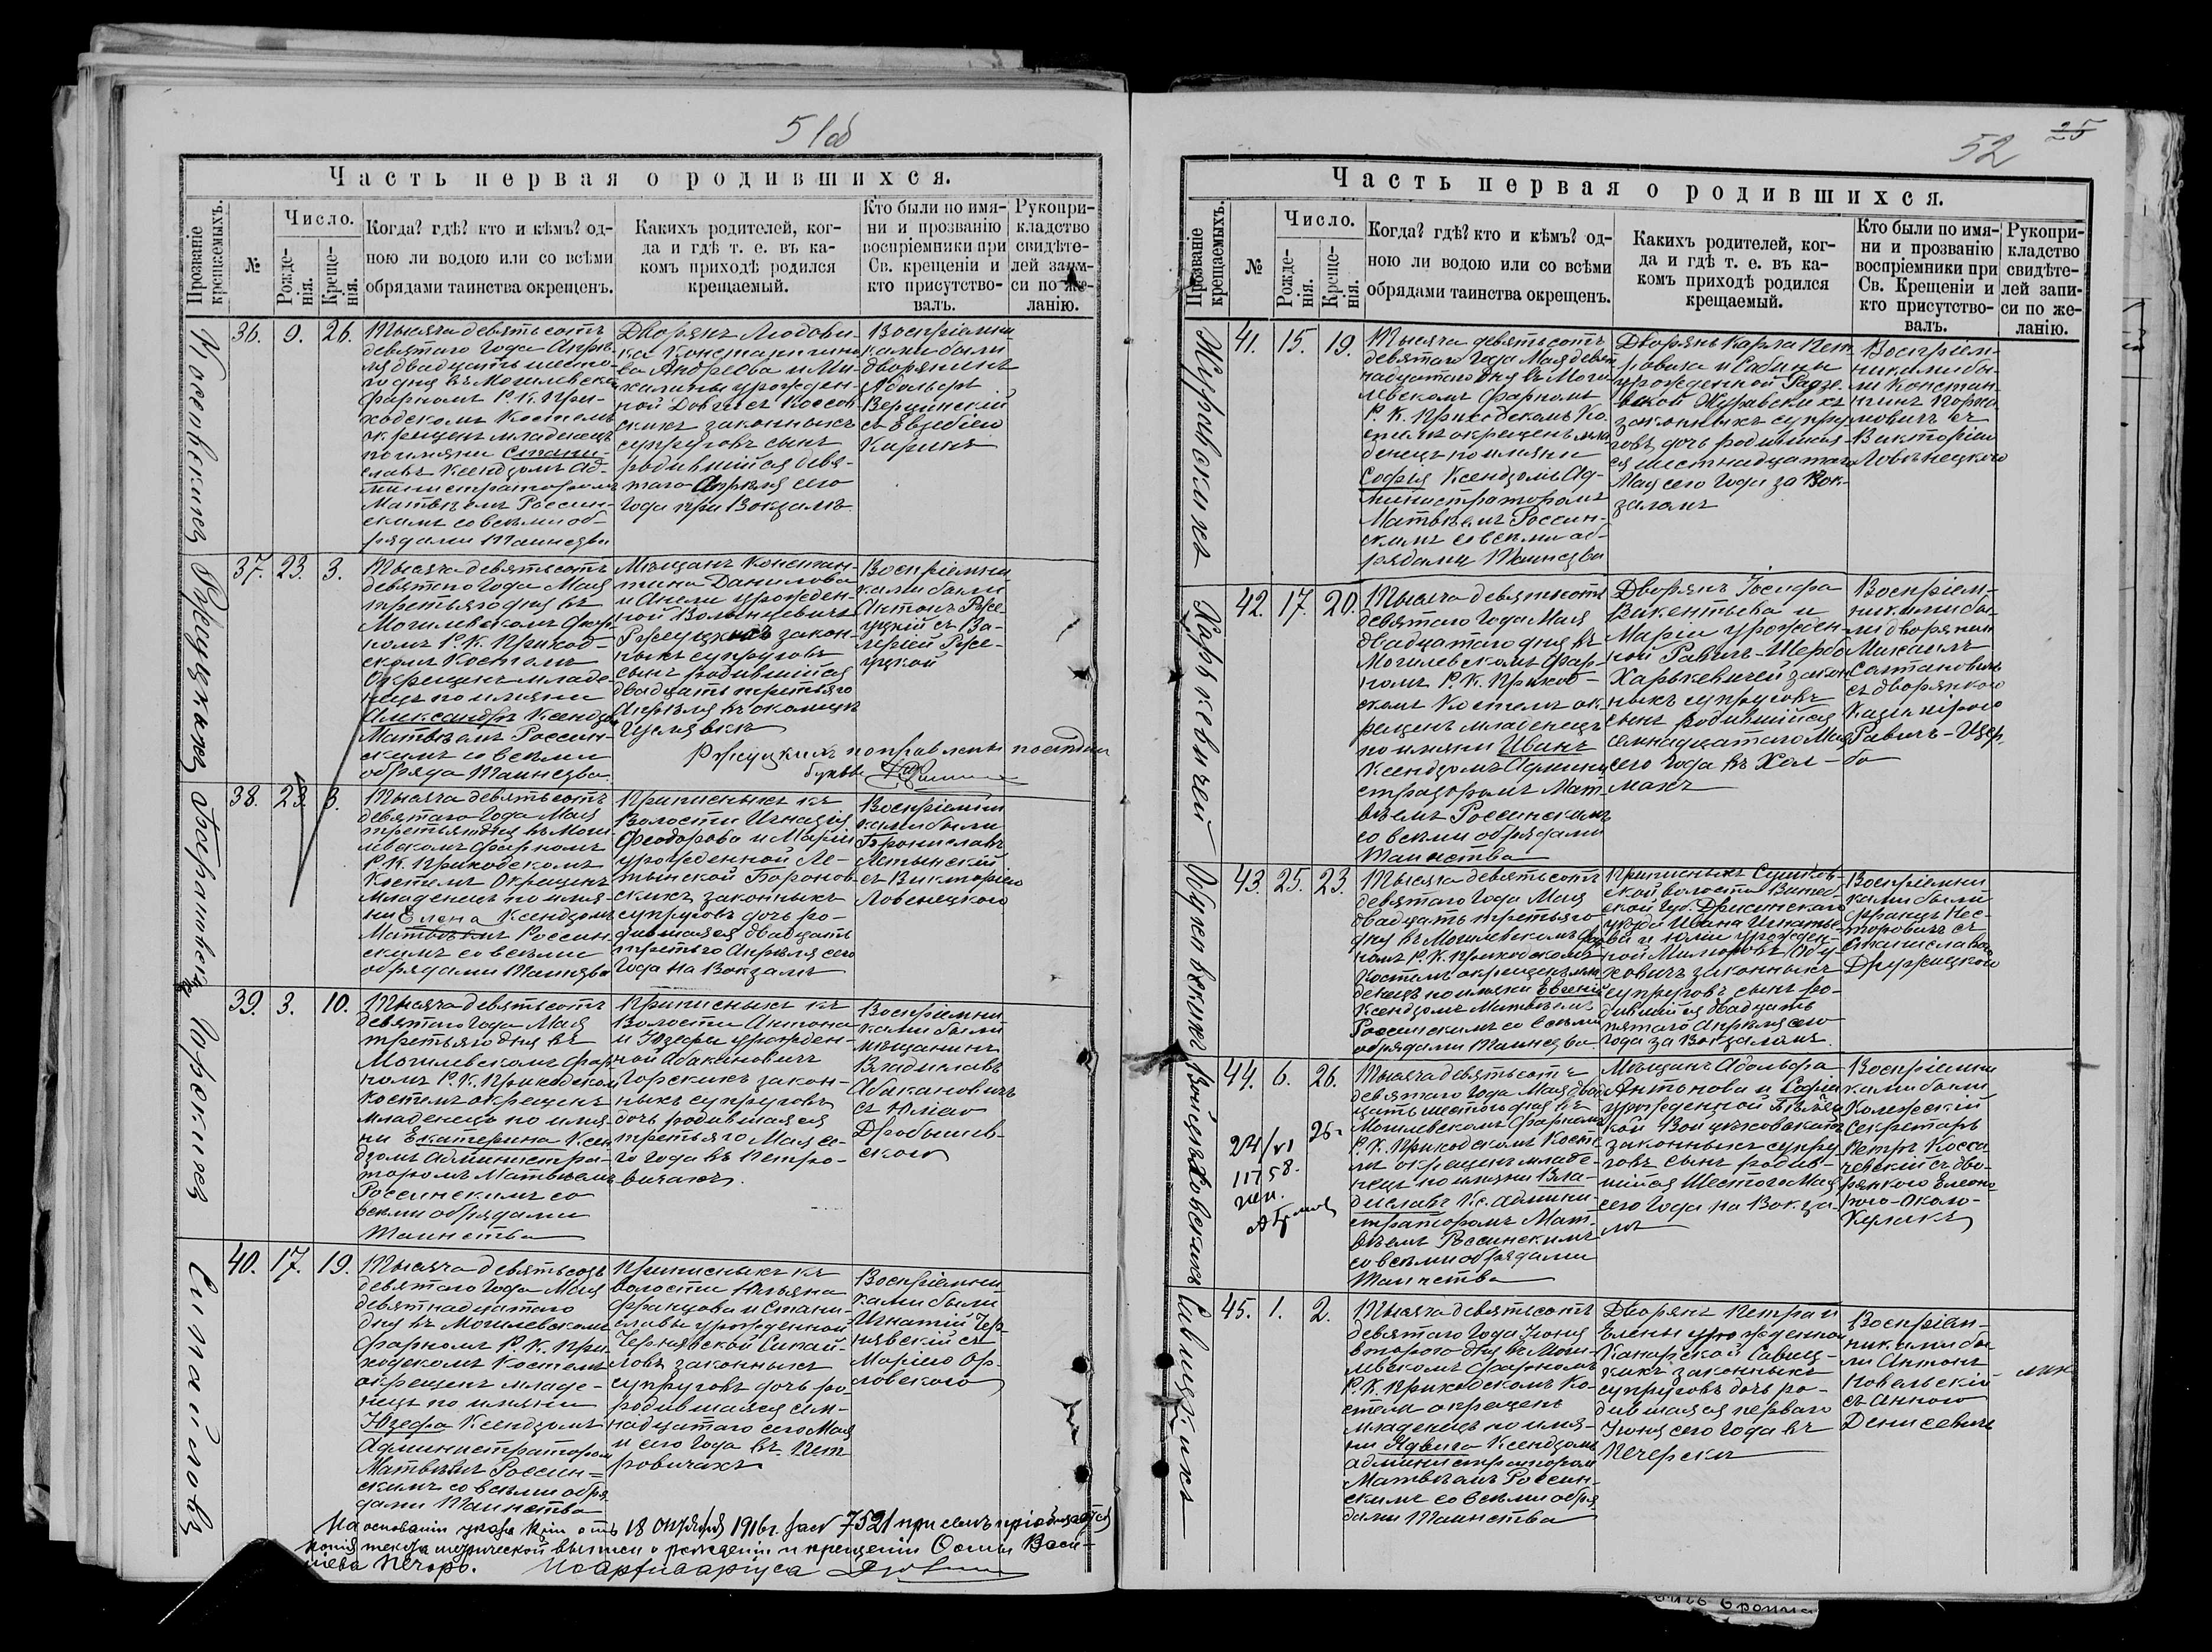 51об
Часть первая о родившихся.
Прозваніе крещаемыхъ.
№
Число.
Рожде-
нія.
Креще-
нія.
Когда? гдѣ? кто и кѣмъ? од-
ною ли водою или со всѣми
обрядами таинства окрещенъ.
Какихъ родителей, ког-
да и гдѣ т. е. въ ка-
комъ приходѣ родился
крещаемый.
Кто были по имя-
ни и прозванію
воспріемники при
Св. крещеніи и
кто присутство-
валъ.
Рукопри-
кладство
свидѣте-
лей запи-
си по же-
ланію.
Коссовскихъ
36. 9. 26.
Тысяча девятьсотъ
девятаго года Апрѣ-
ля двадцать шесто-
го дня въ Могилевском
фарномъ Р. К. При-
ходскомъ Костелѣ
окрещенъ младенецъ
по имяни Стани-
славъ Ксендзомъ Ад-
министраторомъ
Матвѣемъ Россин-
скимъ со всѣми об-
рядами Таинства
Дворянъ Людови-
ка Константино-
ва Андрѣева и Ми-
халины урожден-
ной Довгиъ Коссов-
скихъ законныхъ
супруговъ сынъ
родившійся девя-
таго Апрѣля сего
года при Вокзалѣ
Воспріемни-
ками были
дворянинъ
Адольфъ
Вершинскій
съ Евзебіею
Киринъ
Ржеуцкихъ
37. 23. 3.
Тысяча девятьсотъ
девятаго года Мая
третьяго дня въ
Могилевскомъ фар-
номъ Р. К. Приход-
скомъ Костелѣ
Окрещенъ младе-
нецъ по имяни
Александръ Ксендзом
Матвѣемъ Россин-
скимъ со всѣми
обряда Таинства
Мѣщанъ Констан-
тина Данилова
и Анели урожден-
ной Волынцевичъ
Ржеуцкихъ закон-
ныхъ супруговъ
сынъ родившійся
двадцать третьяго
Апрѣля въ околицѣ
Воспріемни-
ками были
Антонъ Рже-
уцкій съ Ва-
леріей Рже-
уцкой
Ржеуцкихъ поправлены
буквы
38. 23. 3.
Тысяча девятьсотъ
девятаго года Мая
третьяго дня въ Моги-
левскомъ фарномъ
Р. К. Приходскомъ
Костелѣ Окрещенъ
Младенецъ по имя-
ни Елена Ксендзомъ
Матвѣемъ Россин-
скимъ со всѣми
обрядами Таинства
Приписныхъ къ
Волости Игнатія
Феодорова и Маріи
урожденной Ле-
тынской Боронов-
скихъ законныхъ
супруговъ дочь ро-
дившаяся двадцать
третьго Апрѣля сего
года на Вокзалѣ
Воспріемни-
ками были
Брониславъ
Летынскій
съ Викторіею
Ловенецкою
Горскихъ
39. 3. 10.
Тысяча девятьсотъ
девятаго года Мая
третьяго дня въ
Могилевскомъ фар-
номъ Р. К. Приходском
Костелѣ окрещенъ
младенецъ по имя-
ни Екатерина Ксен-
дзомъ Администра-
торомъ Матвѣемъ
Россинскимъ со
всѣми обрядами
Таинства
Приписныхъ къ
Волости Антона
и Юзефы урожден-
ной Абакановичъ
Горскихъ закон-
ныхъ супруговъ
дочь родившаяся
третьяго Мая се-
го года въ Петро-
вичахъ.
Воспріемни-
ками были
мѣщанинъ
Владиславъ
Абакановичъ
съ Юліею
Дробышев-
скою
Сипайловъ
40. 17. 19.
Тысяча девятьсотъ
девятаго года Мая
девятнадцатаго
дня въ Могилевском
фарномъ Р. К. При-
ходскомъ Костелѣ
окрещенъ младе-
нецъ по имяни
Юзефа Ксендзомъ
Администратором
Матвѣемъ Россин-
скимъ со всѣми обря-
дами Таинства
Приписныхъ къ
волости Юльяна
Францова и Стани-
славы урожденной
Чернявской Сипай-
ловъ законныхъ
супруговъ дочь ро-
родившаяся сем-
надцатаго сего Мая
и сего года въ Пет-
ровичахъ
Воспріемни-
ками были
Игнатій Чер-
нявскій съ
Маріею Ор-
ловскою
На основаніи указа Кции отъ 18 октября 1916г. за № 7521 при семъ пріобщается
копія текста метрической выписи о рожденіи и крещеніи Осипа Васи-
ліева Печоро.
52
25
Часть первая о родившихся.
Прозваніе крещаемыхъ.
№
Число.
Рожде-
нія.
Креще-
нія.
Когда? гдѣ? кто и кѣмъ? од-
ною ли водою или со всѣми
обрядами таинства окрещенъ.
Какихъ родителей, ког-
да и гдѣ т. е. въ ка-
комъ приходѣ родился
крещаемый.
Кто были по имя-
ни и прозванію
воспріемники при
Св. Крещеніи и
кто присутство-
валъ.
Рукопри-
кладство
свидѣте-
лей запи-
си по же-
ланію.
Журавскихъ
41. 15. 19.
Тысяча девятьсотъ
девятаго года Мая девят-
надцатаго дня въ Моги-
левскомъ фарномъ
Р. К. Приходскомъ Ко-
стелѣ окрещенъ мла-
денецъ по имяни
Софія Ксендзомъ Ад-
министраторомъ
Матвѣемъ Россин-
скимъ со всѣми об-
рядами Таинства
Дворянъ Карла Пет-
ровича и Сабины
урожденной Радзе-
вской Журавскихъ
законныхъ супру-
говъ дочь родившая-
ся шестнадцатаго
Мая сего года за Вок-
заломъ
Воспріем-
никами бы-
ли Констан-
тинъ
съ
Викторіею
Ловѣнецкою
Харькевичей
42. 17. 20.
Тысяча девятьсотъ
девятаго года Мая
двадцатаго дня въ
Могилевскомъ фар-
номъ Р. К. Приход-
скомъ Костелѣ ок-
рещенъ младенецъ
по имяни Иванъ
Ксендзомъ Админи-
страторомъ Мат-
вѣемъ Россинскимъ
со всѣми обрядами
Таинства
Дворянъ Іосифа
Викентьева и
Маріи урожден-
ной Равичъ-Щербо
Харькевичей закон-
ныхъ супруговъ
сынъ родившійся
семнадцатаго Мая
сего года въ Хол-
махъ
Воспріем-
никами бы-
ли дворянин
Михаилъ
Солтановичъ
съ дворянкою
Казимирою
Равичъ-Щер-
бо
43. 25. 23.
Тысяча девятьсотъ
девятаго года Мая
двадцать третьяго
дня въ Могилевскомъ фар-
номъ Р. К. Приходскомъ
Костелѣ окрещенъ мла-
денецъ по имяни Евгеній
Ксендзомъ Матвѣемъ
Россинскимъ со всѣми
обрядами Таинства
Приписныхъ
ской волости Витеб-
ской Губ. Дриссенскаго
уѣзда Ивана Игнатье-
ва и Юліи урожден-
ной
законныхъ
супруговъ сынъ ро-
дившійся двадцать
пятаго Апрѣля сего
года за Вокзаломъ
Воспріемни-
ками были
Францъ Нес-
торовичъ съ
Станиславою
Дружицкою
Войцѣховскихъ
44. 6. 26.
24/VI
1958.
26.
Тысяча девятьсотъ
девятаго года Мая двад-
цать шестого дня въ
Могилевскомъ фарномъ
Р. К. Приходскомъ Косте-
лѣ окрещенъ младе-
нецъ по имяни Вла-
диславъ Кс. Админи-
страторомъ Мат-
вѣемъ Россинскимъ
со всѣми обрядами
Таинства
Мѣщанъ Адольфа
Антонова и Софіи
урожденной
Войцѣховскихъ
законныхъ супру-
говъ сынъ родив-
шійся Шестого Мая
сего года на Вокза-
лѣ
Воспріемни-
ками были
Коллежскій
Секретарь
Петръ Косса-
чевскій съ дво-
рянкою Элеоно-
рою Около-
Кулакъ
Савицкихъ
45. 1. 2.
Тысяча девятьсотъ
девятаго года Іюня
второго дня въ Моги-
левскомъ фарномъ
Р. К. Приходскомъ Ко-
стелѣ окрещенъ
младенецъ по имя-
ни Ядвига Ксендзомъ
администратором
Матвѣемъ Россин-
скимъ со всѣми обря-
дами Таинства
Дворянъ Петра и
Елены урожденной
Канарской Савиц-
кихъ законныхъ
супруговъ дочь ро-
дившаяся перваго
Іюня сего года въ
Печерскѣ
Воспріем-
никами бы-
ли Антонъ
Ковальскій
съ Анною
Денисевичъ